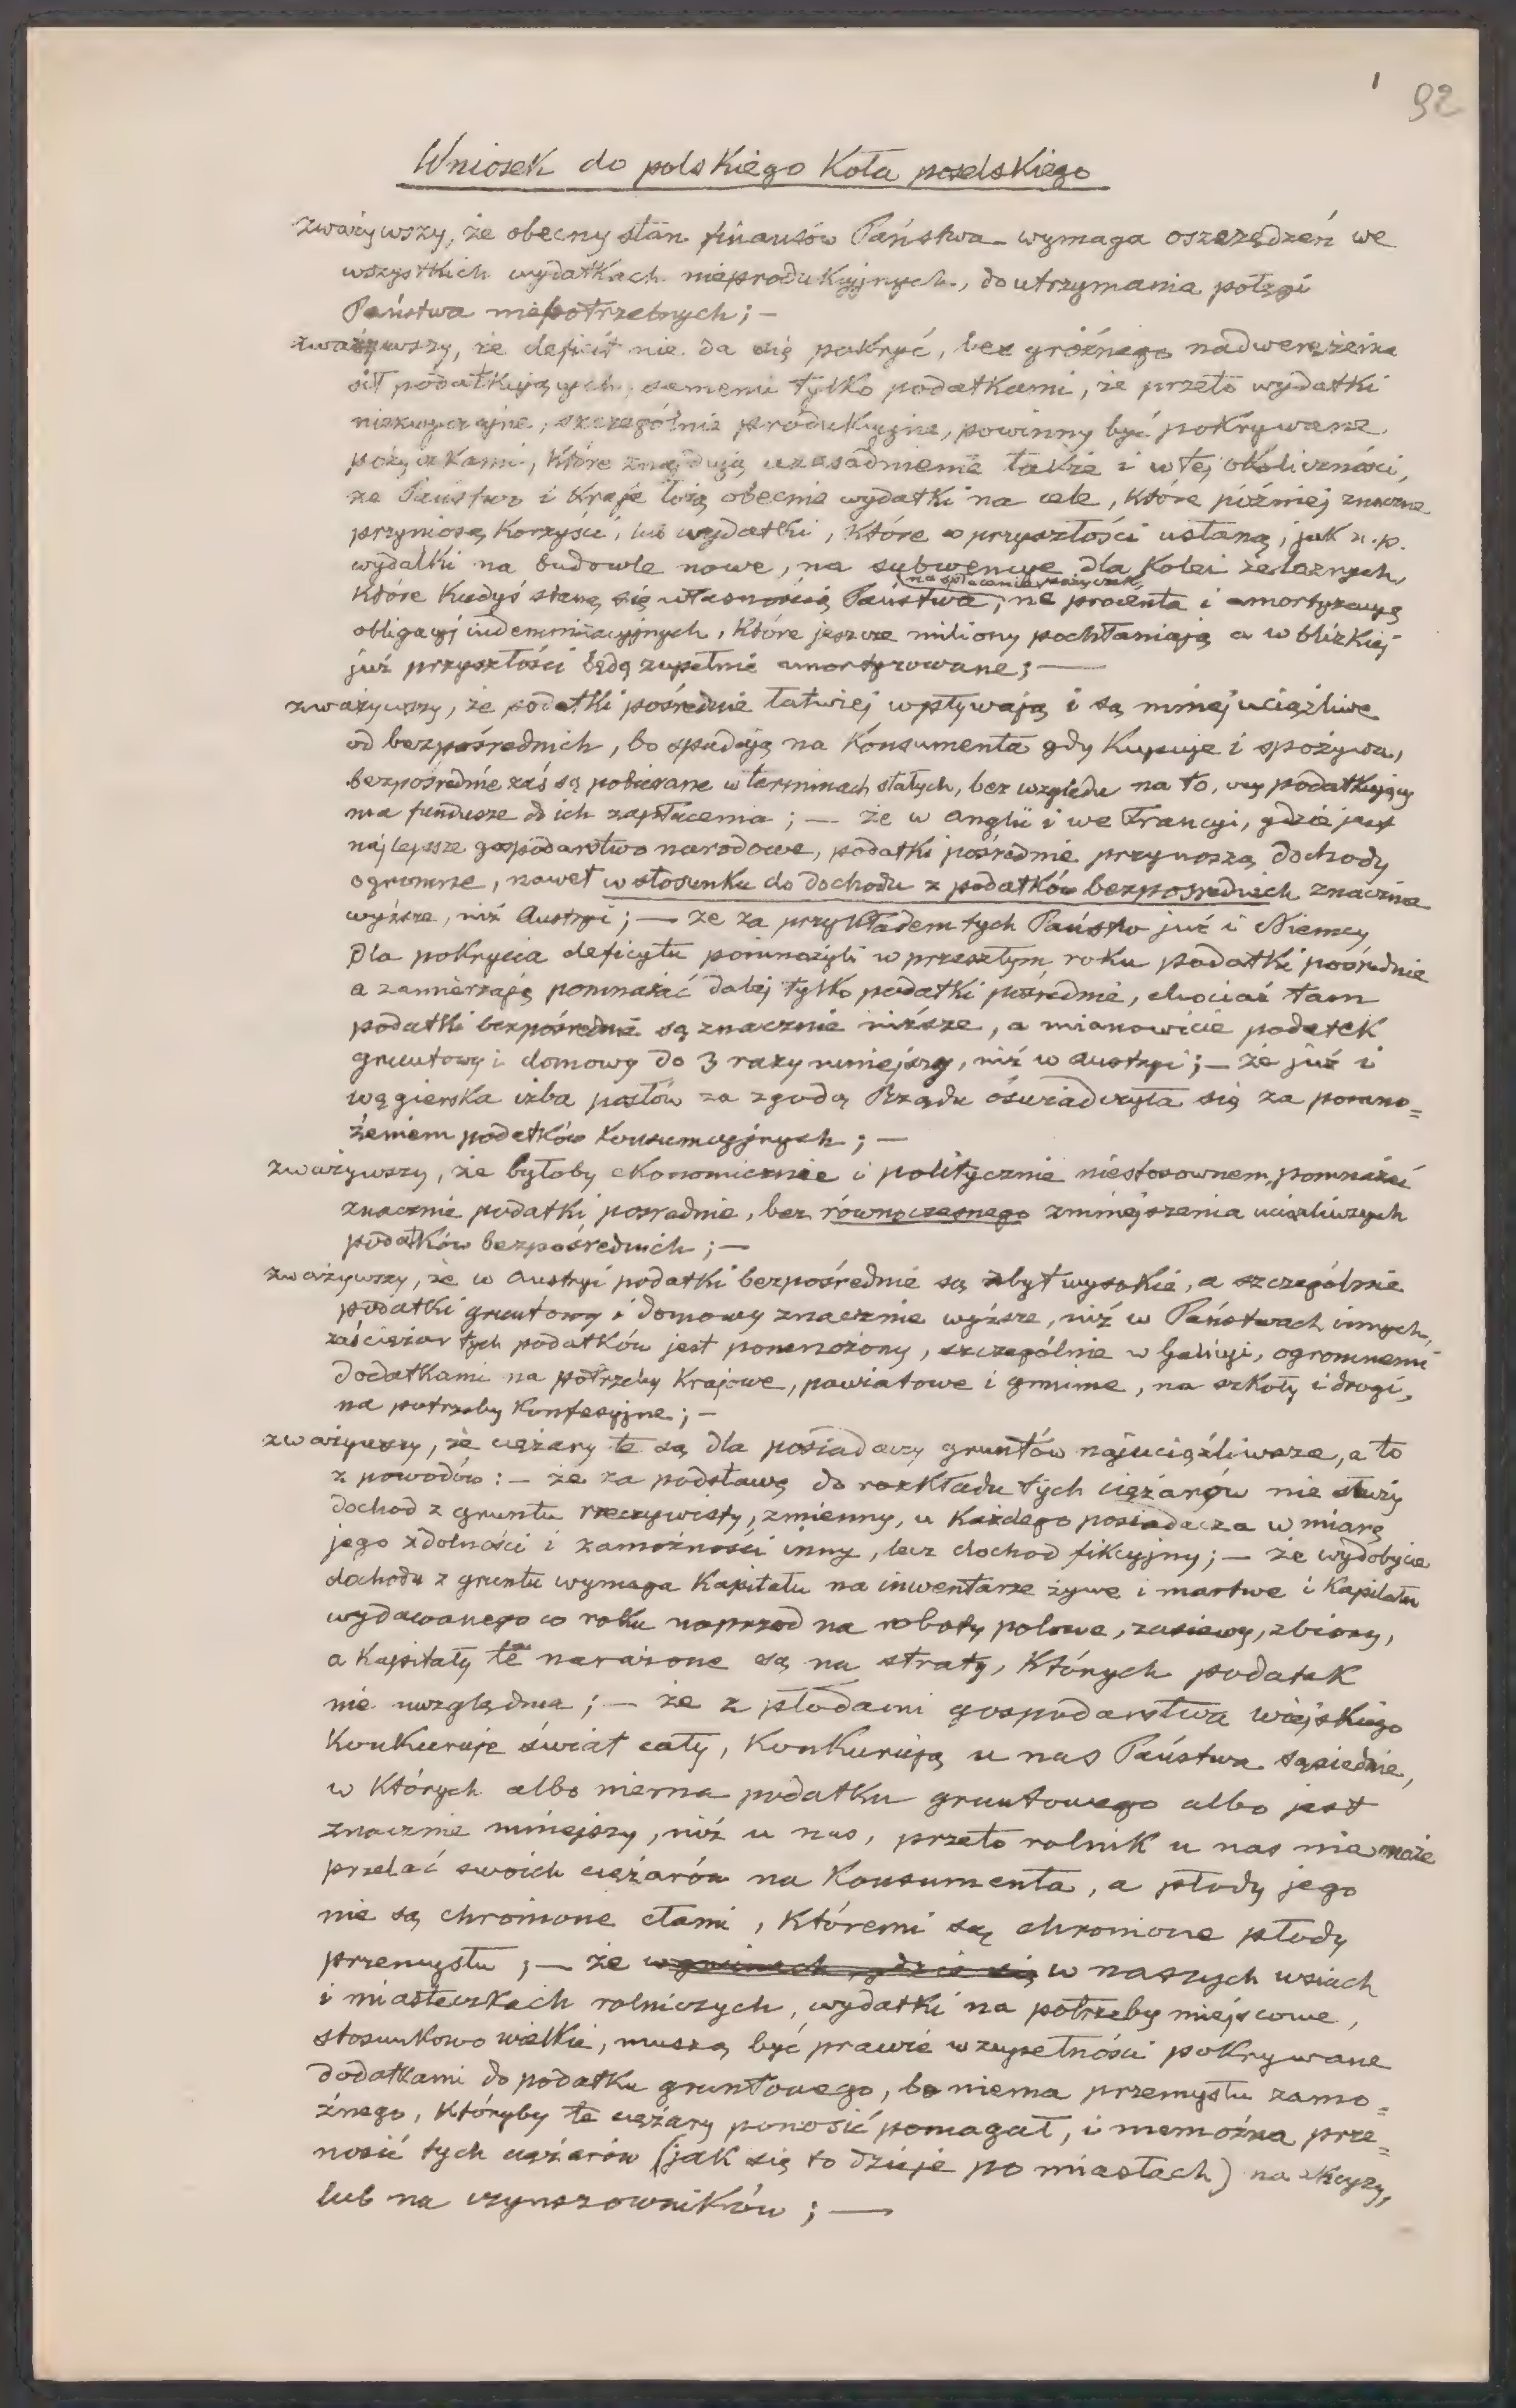 1
92
Wniosek do polskiego Koła poselskiego
zważywszy, że obecny stan finansów Państwa wymaga oszczędzeń we
wszystkich wydatkach nieprodukcyjnych, do utrzymania potęgi
Państwa niepotrzebnych; —
zważywszy, że deficit nie da się pokryć, bez groźnego nadwerężenia
sił podatkujących, samemi tylko podatkami, że przeto wydatki
niezwyczajne, szczególnie produkcyjne, powinny być pokrywane
pożyczkami, które znajdują uzasadnienie także i w tej okoliczności,
że Państwo i Kraje łożą obecnie wydatki na cele, które później znaczne
przyniosą korzyści, lub wydatki, które w przyszłości ustaną, jak n.p.
wydatki na budowle nowe, na subwencye dla Kolei żelaznych,
na spłacenie pożyczek,
które kiedyś staną się własnością Państwa, na procenta i amortyzacyę
obligacyj indemnizacyjnych, które jeszcze miliony pochłaniają a w blizkiej
już przyszłości będą zupełnie amortyzowane; —
zważywszy, że podatki pośrednie łatwiej wpływają i są mniej uciążliwe
od bezpośrednich, bo spadają na konsumenta gdy kupuje i spożywa,
bezpośrednie zaś są pobierane w terminach stałych, bez względu na to, czy podatkujący
ma fundusze do ich zapłacenia; — że w Anglii i we Francyi, gdzie jest
najlepsze gospodarstwo narodowe, podatki pośrednie przynoszą dochody
ogromne, nawet w stosunku do dochodu z podatków bezpośrednich znacznie
wyższe, niż Austryi; — że za przykładem tych Państw już i Niemcy
dla pokrycia deficytu pomnożyli w przeszłym roku podatki pośrednie
a zamierzają pomnażać dalej tylko podatki pośrednie, chociaż tam
podatki bezpośrednie są znacznie niższe, a mianowicie podatek
gruntowy i domowy do 3 razy mniejszy, niż w Austryi; — że już i
węgierska izba posłów za zgodą Rządu oświadczyła się za pomno=
żeniem podatków konsumcyjnych; —
zważywszy, że byłoby ekonomicznie i politycznie niestosownem, pomnażać
znacznie podatki pośrednie, bez równoczesnego zmniejszenia uciążliwszych
podatków bezpośrednich; —
zważywszy, że w Austryi podatki bezpośrednie są zbyt wysokie, a szczególnie
podatki gruntowy i domowy znacznie wyższe, niż w Państwach innych,
zaś ciężar tych podatków jest pomnożony, szczególnie w Galicyi, ogromnemi
dodatkami na potrzeby Krajowe, powiatowe i gminne, na szkoły i drogi,
na potrzeby konfesyjne; —
zważywszy, że ciężary te są dla posiadaczy gruntów najuciążliwsze, a to
z powodów: — że za podstawę do rozkładu tych ciężarów nie służy
dochod z gruntu rzeczywisty, zmienny, u każdego posiadacza w miarę
jego zdolności i zamożności inny, lecz dochod fikcyjny; — że wydobycie
dochodu z gruntu wymaga kapitału na inwentarze żywe i martwe i kapitału
wydawanego co roku naprzod na roboty polowe, zasiewy, zbiory,
a kapitały te narażone są na straty, których podatek
nie uwzględnia; — że z płodami gospodarstwa wiejskiego
konkuruje świat cały, konkurują u nas Państwa sąsiednie,
w których albo niema podatku gruntowego albo jest
znacznie mniejszy, niż u nas, przeto rolnik u nas nie może
przelać swoich ciężarów na konsumenta, a płody jego
nie są chronione cłami, któremi są chronione płody
przemysłu; — że w gminach, gdzie się w naszych wsiach
i miasteczkach rolniczych, wydatki na potrzeby miejscowe,
stosunkowo wielkie, muszą być prawie w zupełności pokrywane
dodatkami do podatku gruntowego, bo niema przemysłu zamo=
żnego, któryby te ciężary ponosić pomagał, i niemożna prze=
nosić tych ciężarów (jak się to dzieje po miastach) na akcyzy,
lub na czynszowników; —